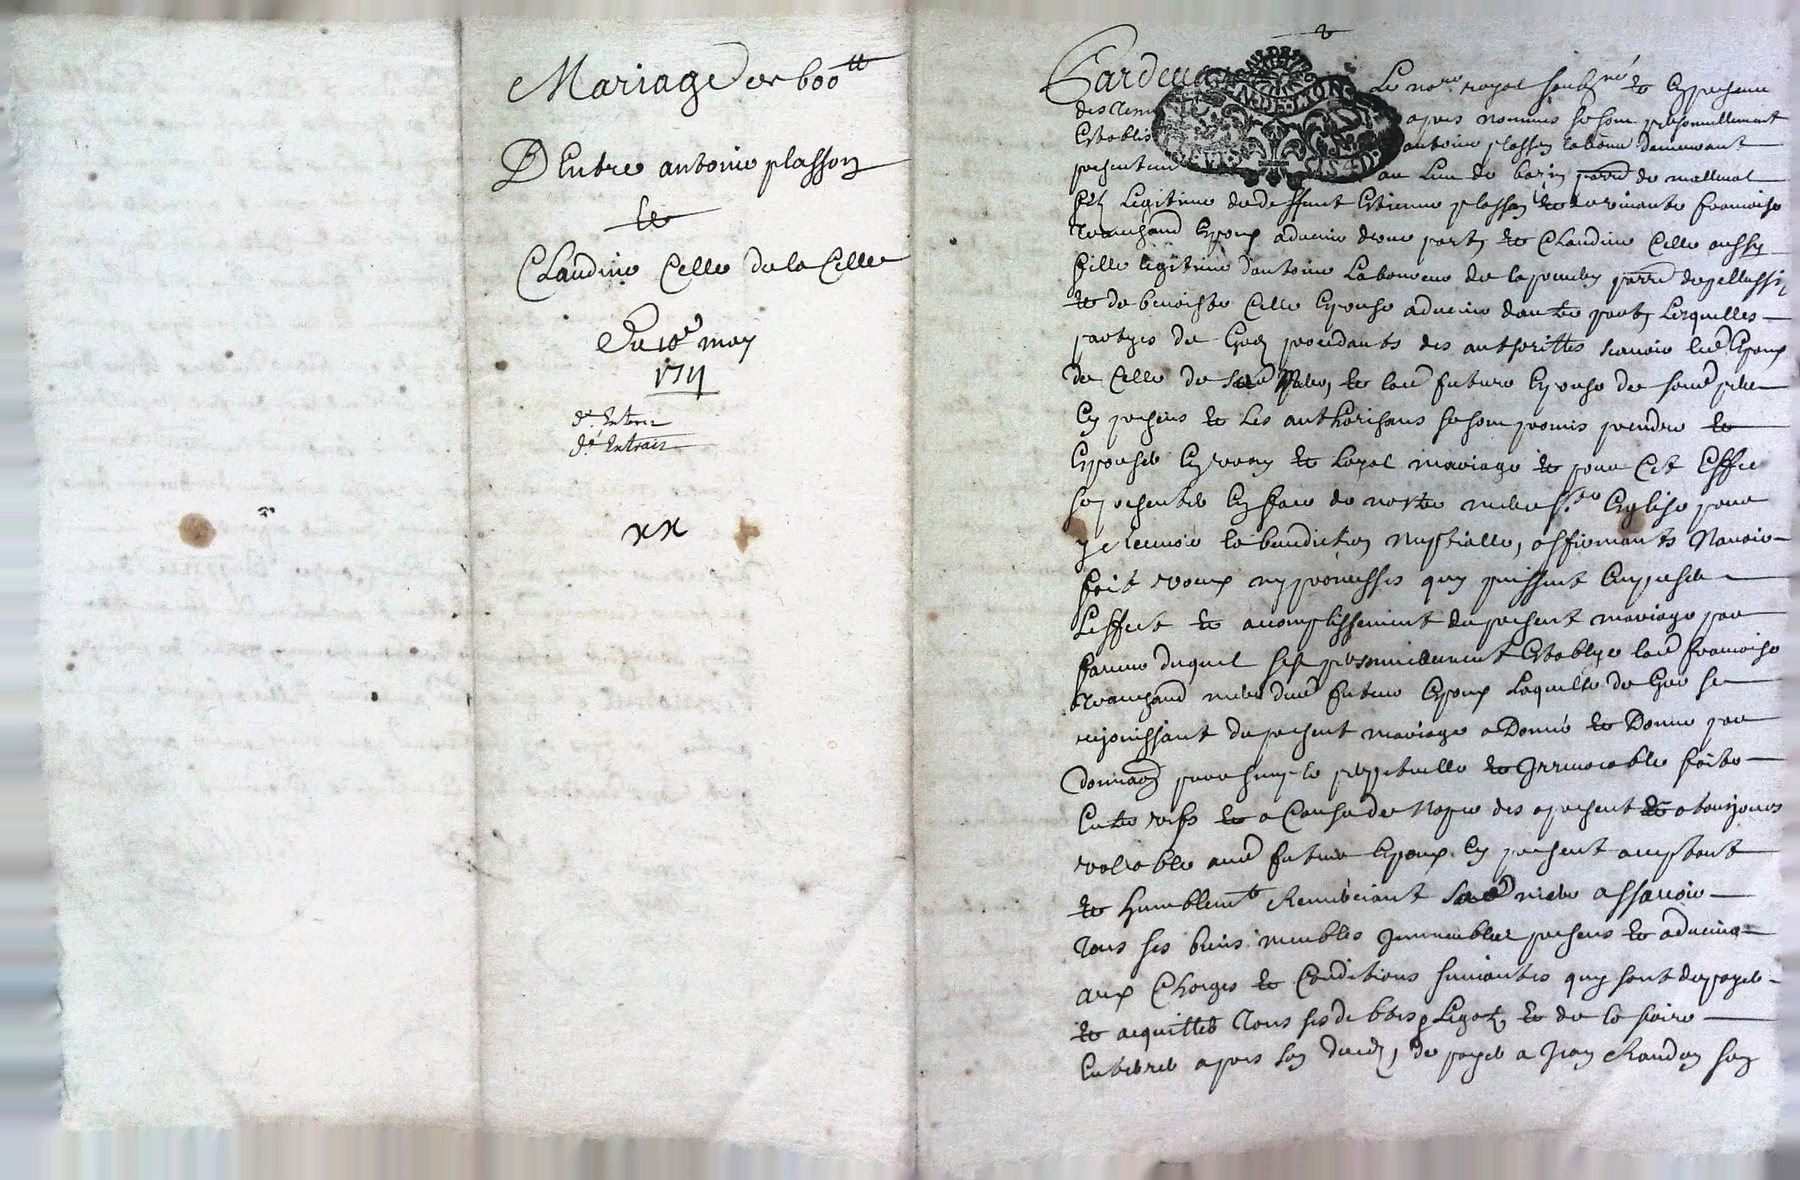 Mariage de 600ᵗᵗ
D'Entre antoine plasson
&
Claudine Celle de la Celle
Du 10ᵉ may
1711
xx
Pardevant Le noʳᵉ royal soubzⁿᵉ & En presence
des apres nommés se sont personnellement
Establis antoine plasson demeurant
presentem au Lieu de parᵉ de malleval
filz Legitime de deffunt Estienne plasson & vivante francoise
Epoux advenir d'une part, & Claudine Celle aussy
fille legitime d'antoine Laboureur de parᵉ de pellussin
& de benoiste Celle Epouse advenir d'autre part, Lesquelles
partyes de Gré procedants des authorittés scavoir led Epoux
de Celle de sad mere, & lad future Epouse de sond pere
En presens & Les authorisans se sont promis prendre &
Epouser En vray & Loyal mariage & pour Cet Effet
se presenter En face de nostre mere sᵗᵉ Eglise pour
y recevoir la benediction nuptialle, affirmants N'avoir
fait voeux ny promesses quy puissent Empescher
L'effect & acomplissement du present mariage par
faveur duquel s'est personnellement Establye lad francoise
mere dud futur Epoux Laquelle de Gré se
rejouissant du present mariage a Donné & Donne par
donnaon pure simple perpetuelle & Irrevocable faite
Entre vifs & a Cause de Nopce des a present & a tousjours
vallable aud futur Epoux En present acceptant
& humblemᵗ Remerciant sad mere assavoir
Tous ses biens meubles Immeubles presens & advenir
aux Charges & Conditions suivantes quy sont de payer
& acquitter Tous ses debtes, Legatz & de la faire
Enterrer apres son deces, de payer a Jean son